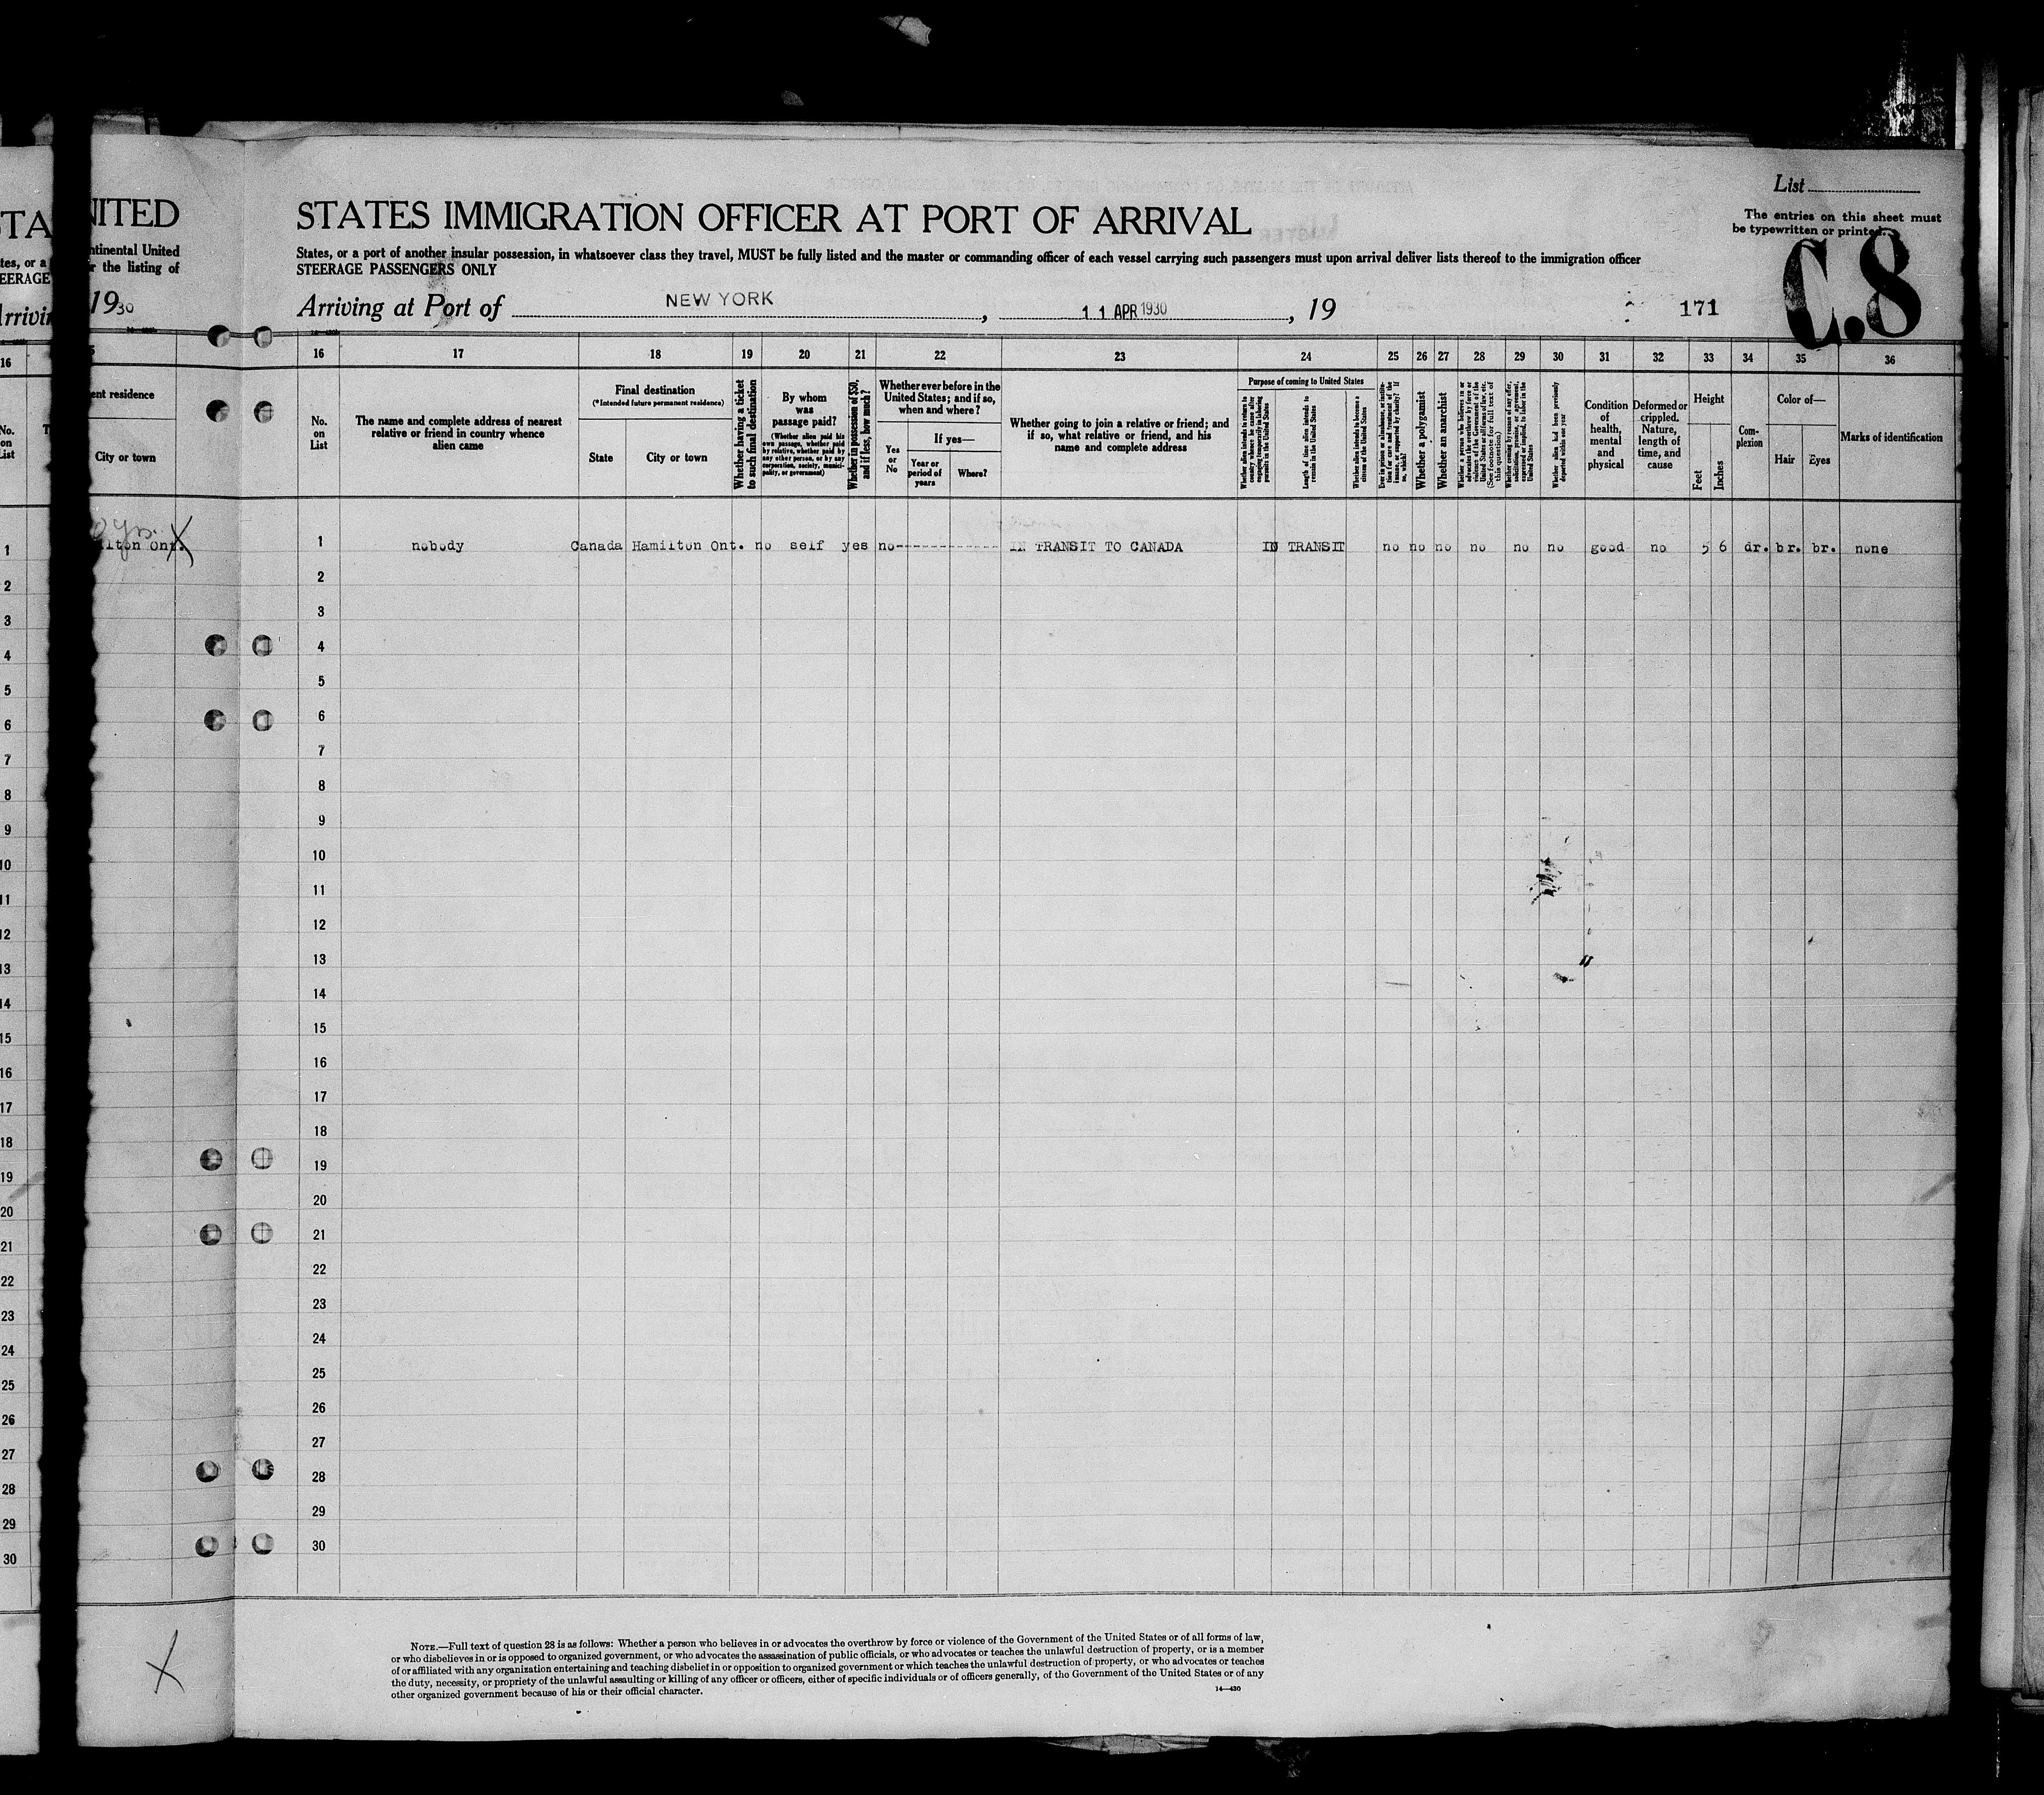 List
The entries on this sheet must
be typewritten or printed.
C.8
STATES IMMIGRATION OFFICER AT PORT OF ARRIVAL
States, or a port of another insular possession, in whatsoever class they travel, MUST be fully listed and the master or commanding officer of each vessel carrying such passengers must upon arrival deliver lists thereof to the immigration officer
STEERAGE PASSENGERS ONLY
Arriving at Port of NEW YORK, 11 APR 1930, 19 171
NITED
ntinental United
r the listing of
1930
16 17 18 19 20 21 22 23 24 25 26 27 28 29 30 31 32 33 34 35 36
ent residence
City or town
No. on List
The name and complete address of nearest relative or friend in country whence alien came
Final destination
(*Intended future permanent residence)
State
City or town
Whether having a ticket to such final destination
By whom was passage paid?
(Whether alien paid his own passage, whether paid by relative, whether paid by any other person, or by any corporation, society, municipality, or government)
Whether in possession of $50, and if less, how much?
Whether ever before in the United States; and if so, when and where?
Yes or No
If yes—
Year or period of years
Where?
Whether going to join a relative or friend; and if so, what relative or friend, and his name and complete address
Purpose of coming to United States
Whether alien intends to return to country whence he came after engaging temporarily in laboring pursuits in the United States
Length of time alien intends to remain in the United States
Whether alien intends to become a citizen of the United States
Ever in prison or almshouse, or institution for care and treatment of the insane, or supported by charity? If so, which?
Whether a polygamist
Whether an anarchist
(See footnote for full text of this question)
Whether coming by reason of any offer, solicitation, promise, or agreement, expressed or implied, to labor in the United States
Whether alien had been previously deported within one year
Condition of health, mental and physical
Deformed or crippled. Nature, length of time, and cause
Height
Feet
Inches
Complexion
Color of—
Hair
Eyes
Marks of identification
ilton Ont.
1 nobody Canada Hamilton Ont. no self yes no------------- IN TRANSIT TO CANADA IN TRANSIT no no no no no no good no 5 6 dr. br. br. none
2
3
4
5
6
7
8
9
10
11
12
13
14
15
16
17
18
19
20
21
22
23
24
25
26
27
28
29
30
NOTE.—Full text of question 28 is as follows: Whether a person who believes in or advocates the overthrow by force or violence of the Government of the United States or of all forms of law,
or who disbelieves in or is opposed to organized government, or who advocates the assassination of public officials, or who advocates or teaches the unlawful destruction of property, or is a member
of or affiliated with any organization entertaining and teaching disbelief in or opposition to organized government or which teaches the unlawful destruction of property, or who advocates or teaches
the duty, necessity, or propriety of the unlawful assaulting or killing of any officer or officers, either of specific individuals or of officers generally, of the Government of the United States or of any
other organized government because of his or their official character.
14—430